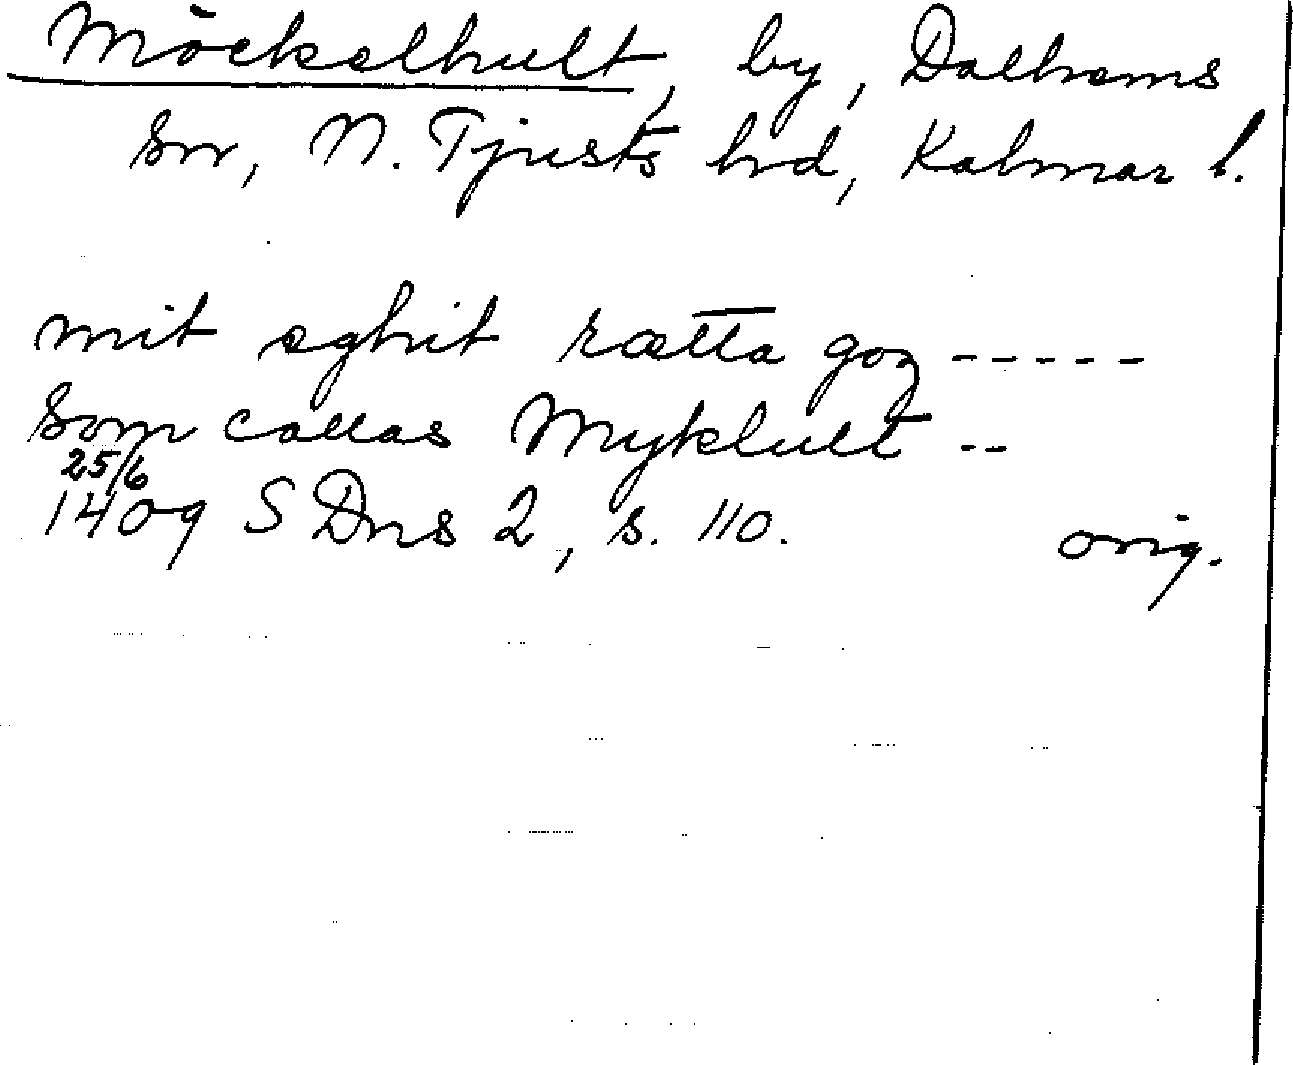 Möckelhult, by, Dalhems
sn, N. Tjusts hd, Kalmar l.
mit eghit rætta goz -----
som callas Myklult --
25/6
1409 SDns 2, s. 110. orig.